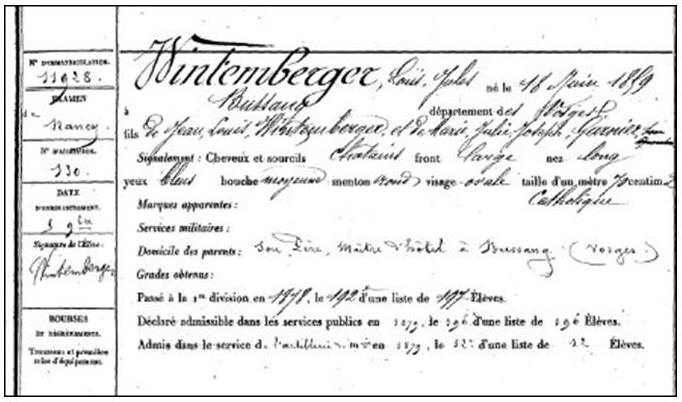 N° D'IMMATRICULATION.
11928.
EXAMEN
de
Nancy
N° D'ADMISSION.
130
DATE
D'ENREGISTREMENT.
5 9bre
Signature de l'Élève:
Wintemberger
BOURSES
ET DÉGRÈVEMENTS.
Trousseau et première
mise d'équipement.
Wintemberger, Louis, Jules né le 18 1859
à Bussang département des Vosges
fils de Jean, Louis, Wintemberger, et de Marie, Julie, Joseph, Garnier
Signalement: Cheveux et sourcils chatains front large nez long
yeux bleus bouche moyenne menton rond visage ovale taille d'un mètre 70 centim.
Marques apparentes: Catholique
Services militaires:
Domicile des parents: Son Père, Maître d'hôtel à Bussang (Vosges.)
Grades obtenus:
Passé à la 1re division en 1878, le 192e d'une liste de 197 Élèves.
Déclaré admissible dans les services publics en 1879, le 196e d'une liste de 196 Élèves.
Admis dans le service de l'artillerie en 1879, le 52e d'une liste de 52 Élèves.